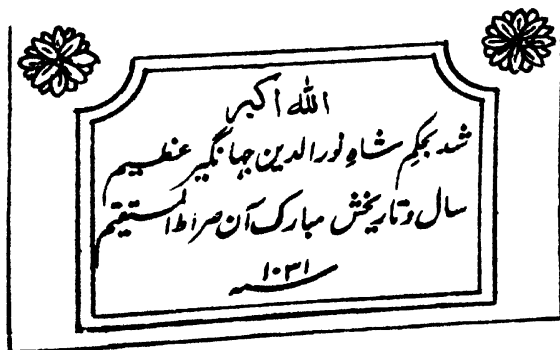 الله اکبر
شد بحکمِ شاہِ نور الدین جہانگیر عظیم
سال و تاریخش مبارک آن صراط المستقیم
سنہ ۱۰۳۱